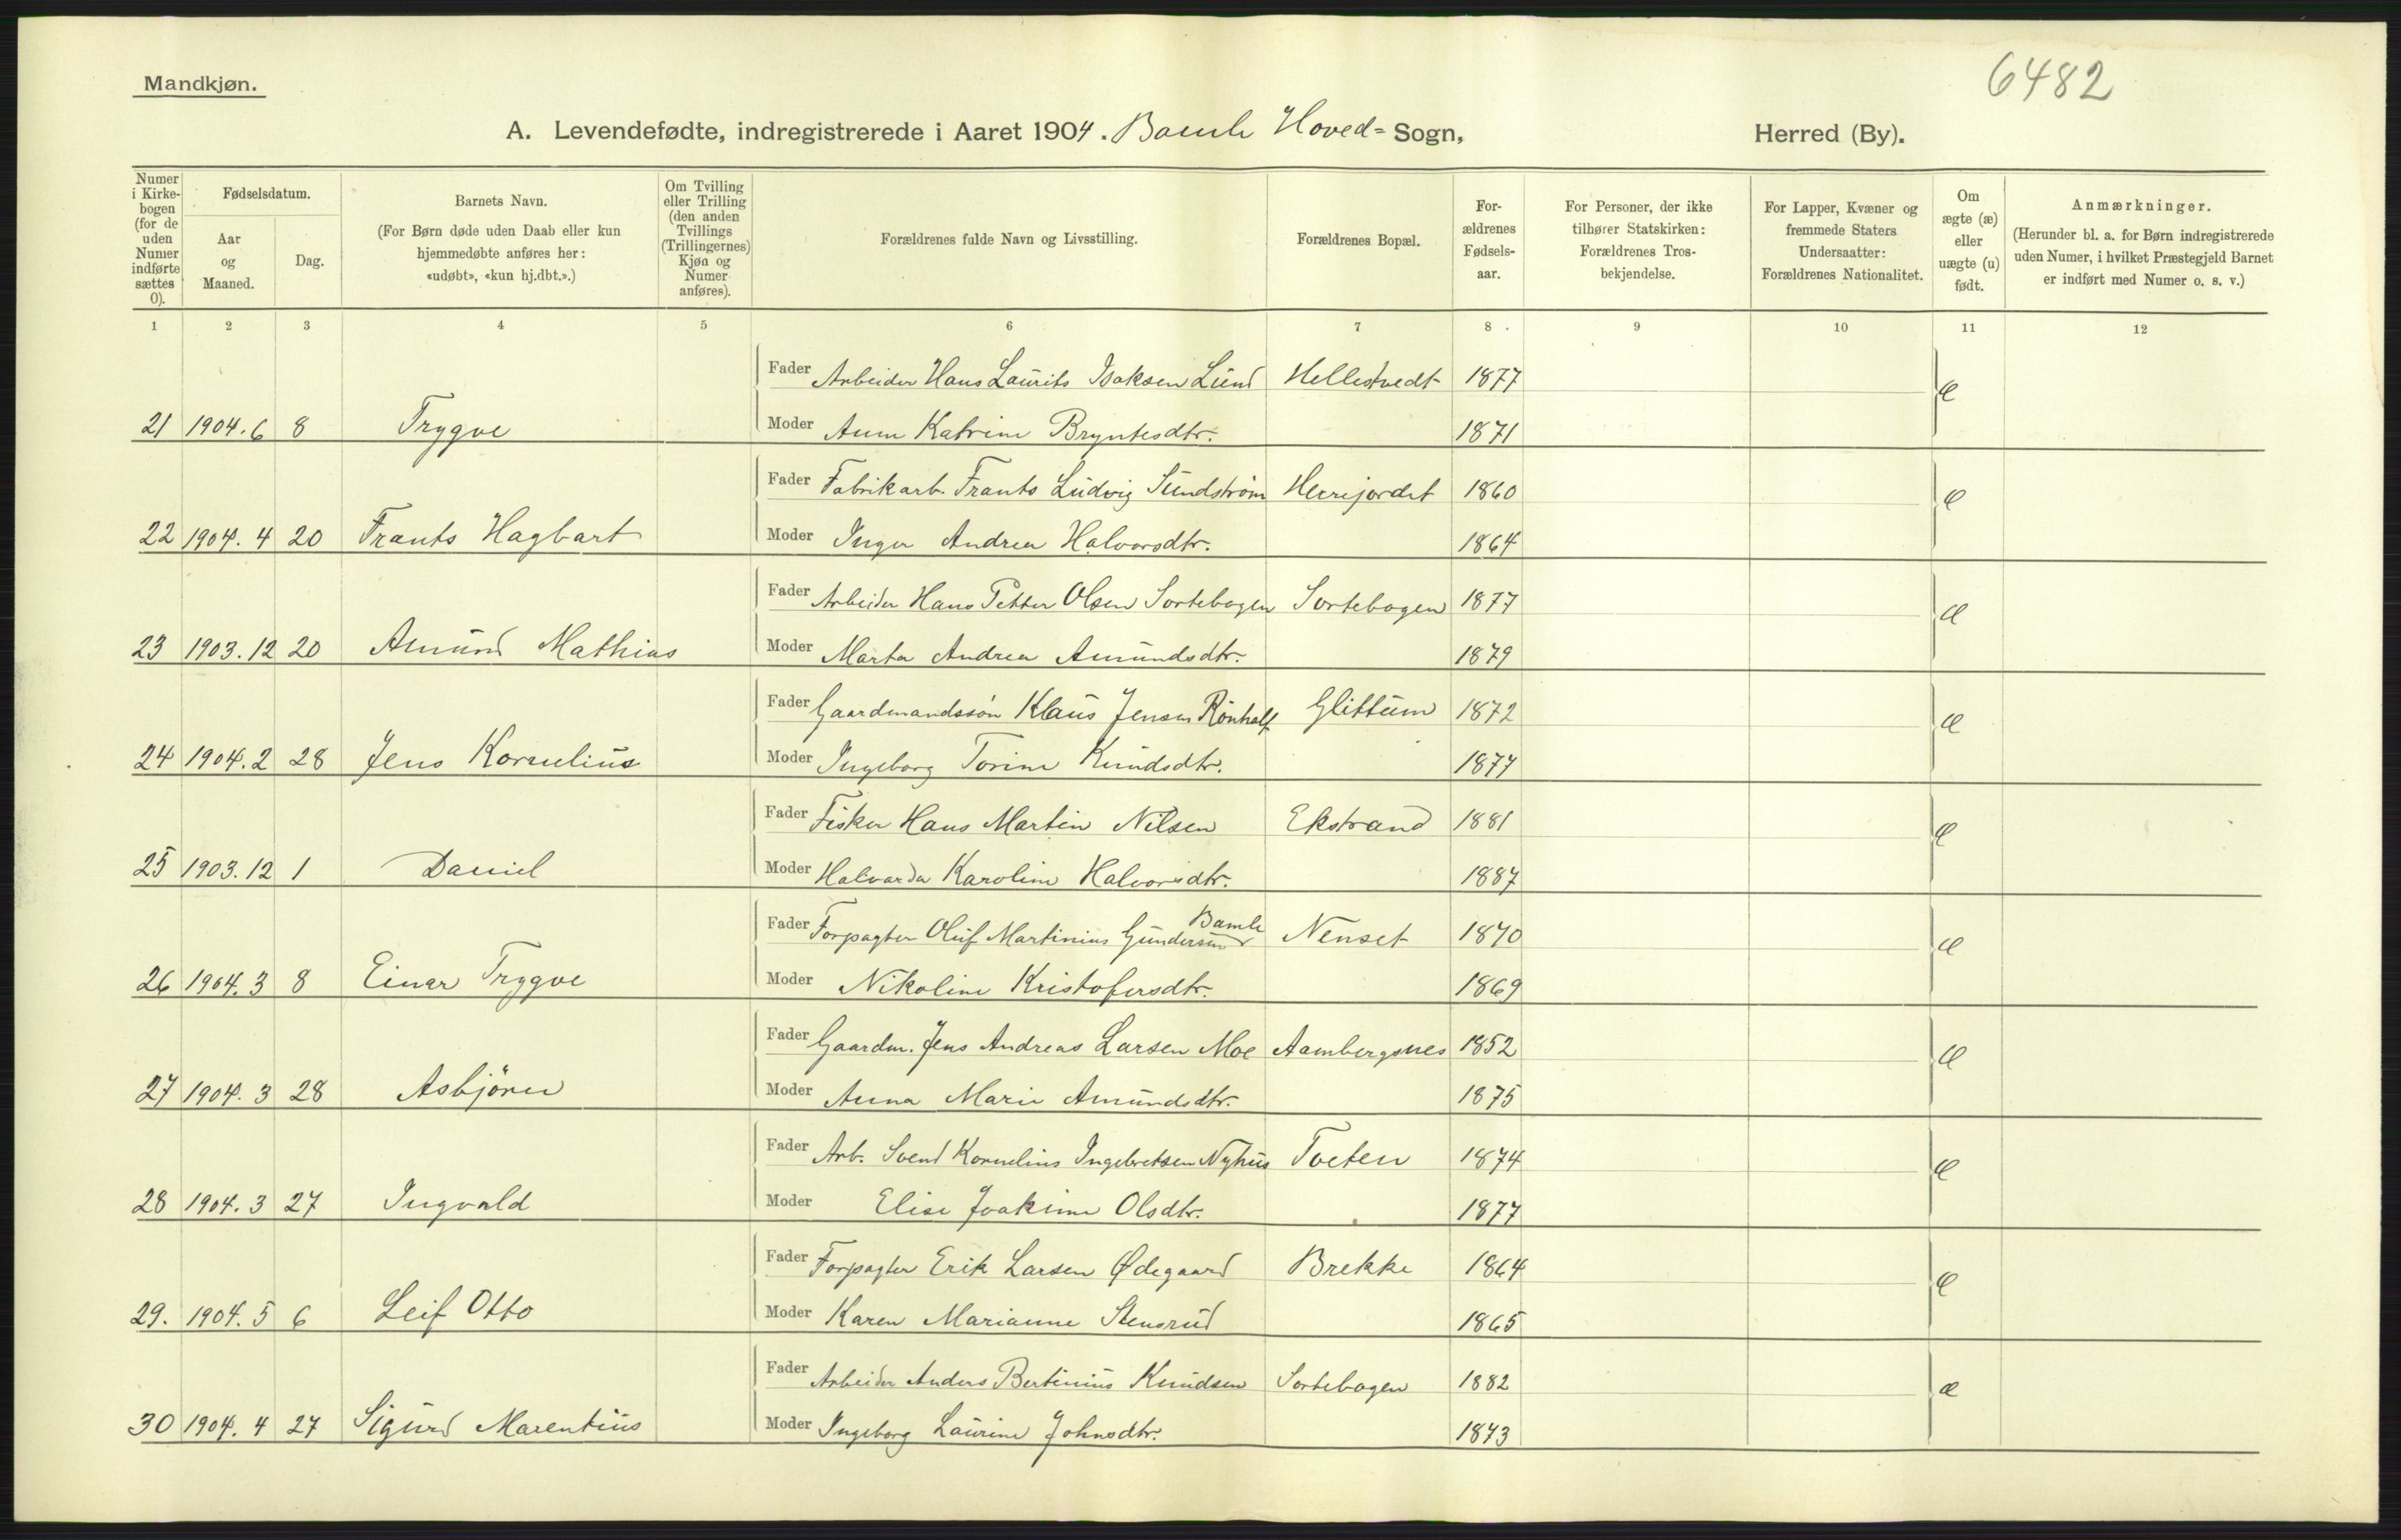 6482
Mandkjøn.
A. Levendefødte, indregistrerede i Aaret 1904. Bamle Hoved= Sogn, Herred (By).
Numer i Kirke-bogen (for de uden Numer indførte sættes 0). Fødselsdatum. Aar og Maaned. Dag. Barnets Navn. (For Børn døde uden Daab eller kun hjemmedøbte anføres her: «udøbt», «kun hj.dbt.».) Om Tvilling eller Trilling (den anden Tvillings (Trillingernes) Kjøn og Numer anføres). Forældrenes fulde Navn og Livsstilling. Forældrenes Bopæl. For-ældrenes Fødsels-aar. For Personer, der ikke tilhører Statskirken: Forældrenes Tros-bekjendelse. For Lapper, Kvæner og fremmede Staters Undersaatter: Forældrenes Nationalitet. Om ægte (æ) eller uægte (u) født. Anmærkninger. (Herunder bl. a. for Børn indregistrerede uden Numer, i hvilket Præstegjeld Barnet er indført med Numer o. s. v.)
1 2 3 4 5 6 7 8 9 10 11 12
Fader Arbeider Hans Laurits Isaksen Lund Hellestvedt 1877 æ
21 1904.6 8 Trygve Moder Anna Katrine Bryntesdtr. 1871
Fader Fabrikarb. Frants Ludvig Sundstrøm Herrejordet 1860 æ
22 1904.4 20 Frants Hagbart Moder Inger Andrea Halvorsdtr. 1864
Fader Arbeider Hans Petter Olsen Sortebogen Sortebogen 1877 æ
23 1903.12 20 Amund Mathias Moder Marta Andrea Amundsdtr. 1879
Fader Gaardmandssön Klaus Jensen Rönholt Glittum 1872 æ
24 1904.2 28 Jens Kornelius Moder Ingeborg Torine Knudsdtr. 1877
Fader Fisker Hans Martin Nilsen Ekstrand 1881 æ
25 1903.12 1 Daniel Moder Halvarda Karoline Halvorsdtr. 1887
Fader Forpagter Oluf Martinius Gundersen Bamle Nenset 1870 æ
26 1904.3 8 Einar Trygve Moder Nikoline Kristofersdtr. 1869
Fader Gaardm. Jens Andreas Larsen Moe Aambergsnes 1852 æ
27 1904.3 28 Asbjörn Moder Anna Marie Amundsdtr. 1875
Fader Arb. Svend Kornelius Ingebretsen Nyhus Tveten 1874 æ
28 1904.3 27 Ingvald Moder Elise Joakime Olsdtr. 1877
Fader Forpagter Erik Larsen Ødegaard Brekke 1864 æ
29. 1904.5 6 Leif Otto Moder Karen Marianne Stensrud 1865
Fader Arbeider Anders Bertinius Knudsen Sortebogen 1882 æ
30 1904.4 27 Sigurd Marentius Moder Ingeborg Laurine Johnsdtr. 1873